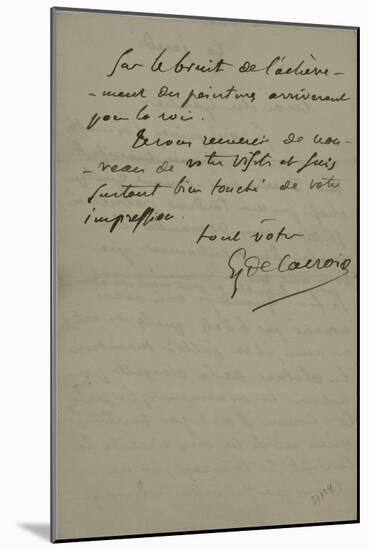 Sur le bruit de l'achève-
-ment des peintures arriveront
pour la voir.
Je vous remercie de nou-
-veau de votre visite et suis
surtout bien touché de votre
impression.
tout à votre
Eug Delacroix